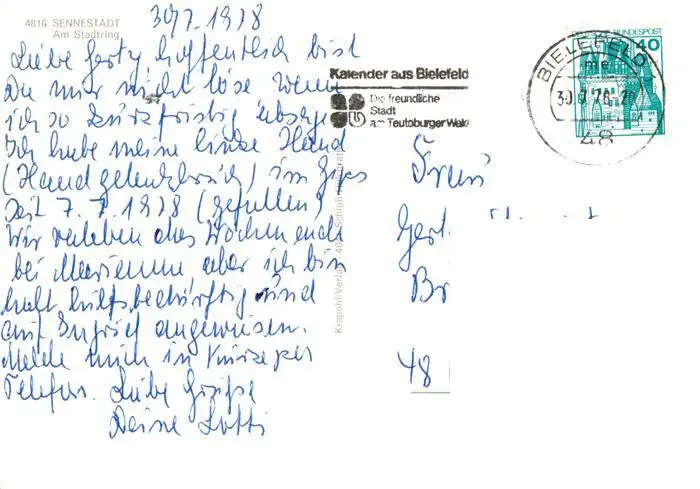 4816 SENNESTADT
Am Stadtring
30/7. 1978
Liebe Gerty hoffentlich bist
Du mir nicht böse wenn
ich so kurzfristig absage
Ich habe meine linke Hand
(Handgelenkbruch) im Gips
seit 7.7.1978 (gefallen)
Wir verleben das Wochenende
bei Marianne aber ich bin
halt hilfsbedürftig und
auf Ingrid angewiesen.
Melde mich in Kürze per
Telefon. Liebe Grüße
Deine Lotti
Kalender aus Bielefeld
Die freundliche
Stadt
am Teutoburger Wald
BIELEFELD
30.7.78
48
DEUTSCHE BUNDESPOST
40
Krapohl-Verlag
Frau
Gert
Br
48